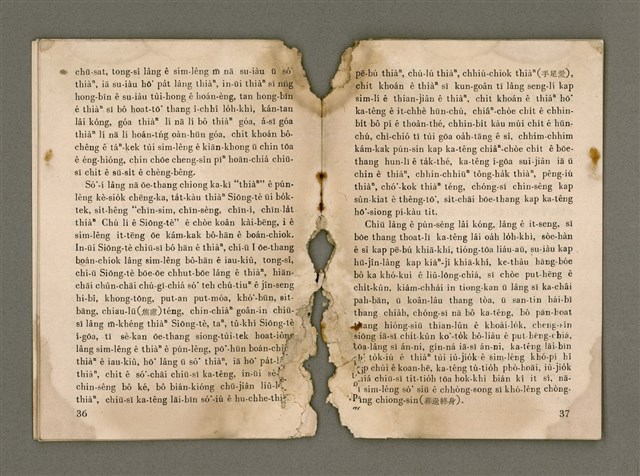 chū-sat, tong-sî lâng ê sim-lêng m̄ nā su-iàu ū só͘
thiàⁿ, iā su-iàu hō͘ pa̍t lâng thiàⁿ, in-ūi thiàⁿ sī nn̄g
hong-bīn ê su-iàu tùi-hong ê hoán-èng, tan hong-bīn
ê thiàⁿ sī bô hoat-tō͘ thang î-chhî lo̍h-khì, kán-tan
lâi kóng, góa thiàⁿ lí nā lí bô thiàⁿ góa, á-sī góa
thiàⁿ lí nā lí hoán-tńg oàn-hūn góa, chit khoán bô-
chêng ê táⁿ-kek tùi sim-lêng ê kiān-khong ū chin tōa
ê éng-hióng, chin chōe cheng-sîn pīⁿ hoān-chiá chiū-
sī chit ê sū-si̍t ê chèng-bêng.
Só͘-í lâng nā ōe-thang chiong ka-kī "thiàⁿ" ê pún-
lêng kè-sio̍k chēng-ka, ta̍t-kàu thiàⁿ Siōng-tè ūi bo̍k-
tek, si̍t-hêng "chīn-sim, chīn-sèng, chīn-ì, chīn-la̍t
thiàⁿ Chú lí ê Siōng-tè" ê chòe koân kài-bēng, i ê
sim-lêng it-tēng ōe kám-kak bô-hān ê boán-chiok.
In-ūi Siōng-tè chiū-sī bô hān ê thiàⁿ, chí-ū I ōe-thang
boán-chiok lâng sim-lêng bô-hān ê iau-kiû, tong-sî,
chí-ū Siōng-tè bōe-ōe chhut-bōe lâng ê thiàⁿ, hiān-
chāi chūn-chāi chú-gī-chiá só͘ teh chú-tiuⁿ ê jîn-seng
hi-bî, khong-tōng, put-an put-móa, khó͘-būn, sit-
bāng, chiau-lū(焦慮)téng, chin-chiàⁿ goân-in chiū-
sī lâng m̄-khéng thiàⁿ Siōng-tè, taⁿ, tû-khì Siōng-tè
í-gōa, tī sè-kan ōe-thang siong-tùi-tek hoat-iông
lâng sim-lêng ê thiàⁿ ê pún-lêng, pó͘-hūn boán-chiok
thiàⁿ ê iau-kiû, hō͘ lâng ū só͘ thiàⁿ, iā hō͘ pa̍t-lâng
thiàⁿ, chit ê só͘-chāi chiū-sī ka-têng, in-ūi
chin-sêng bô ké, bô biàn-kióng chū-jiân
thiàⁿ, chiū-sī ka-têng lāi-bīn só͘-iú ê hu-chhe thiàⁿ
36
pē-bú thiàⁿ, chú-lú thiàⁿ, chhiú-chiok thiàⁿ(手足愛),
chit khoán ê thiàⁿ sī kun-goân tī lâng seng-lí kap
sim-lí ê thian-jiân ê thiàⁿ, chit khoán ê thiàⁿ hō͘
ka-têng ê it-chhè hūn-chú, chiâⁿ-chòe chi̍t ê chhin-
bi̍t bô pí ê thoân-thé, chhin-bi̍t kàu mûi chi̍t ê hūn-
chú, chî-chió tī tùi gōa oa̍h-tāng ê sî, chhim-chhim
kám-kak pún-sin kap ka-têng chiâⁿ-chòe chi̍t ê bōe-
thang hun-lī ê ta̍k-thé, ka-têng í-gōa sui-jiân iā ū
chin ê thiàⁿ, chhin-chhiūⁿ tông-ha̍k thiàⁿ, pêng-iú
thiàⁿ, chó͘-kok thiàⁿ téng, chóng-sī chin-sêng kap
sûn-kiat ê thêng-tō͘, si̍t-chāi bōe-thang kap ka-têng
hō͘-siong pí-kàu tit.
Chiū lâng ê pún-sêng lâi kóng, lâng ê it-seng, sī
bōe thang thoat-lī ka-têng lâi oa̍h lo̍h-khì, sòe-hàn
ê sî kap pē-bú khiā-khí, tióng-tōa liáu-āu, su-iàu kap
hū-jîn-lâng kap kiáⁿ-jî khiā-khí, ke-thâu hāng-bóe
bô ka khó-kui ê liû-lōng-chiá, sī chòe put-hēng ê
chi̍t-kûn, kiám-chhái in tiong-kan ū lâng sī ka-châi
pah-bān, ū koân-lâu thang tòa, ū san-tin hái-bī
thang chia̍h, chóng-sī nā bô ka-têng, bô pān-hoat
thang hióng-siū thian-lûn ê khoài-lo̍k, cheng-sîn
siōng iā-sī chi̍t-kûn ko͘-to̍k bô lióh-bēu put-hēng-chiá,
tōa-lâng sī án-ni, gín-ná iā-sī án-ni, ka-têng lāi-bīn
tio̍h-iú ê thiàⁿ tùi iù-jio̍k ê sim-lêng khó-pí hî
chúi ê koan-hē, ka-têng tú-tio̍h phò-hoāi, iù-jio̍k
chiū-sī tit-tio̍h tōa hok-khì biān kî it sí, nā-
sim-lêng só͘ siū ê chhòng-song sī khó-lêng chòng-
Pìng chiong-sin(葬送終身).
37